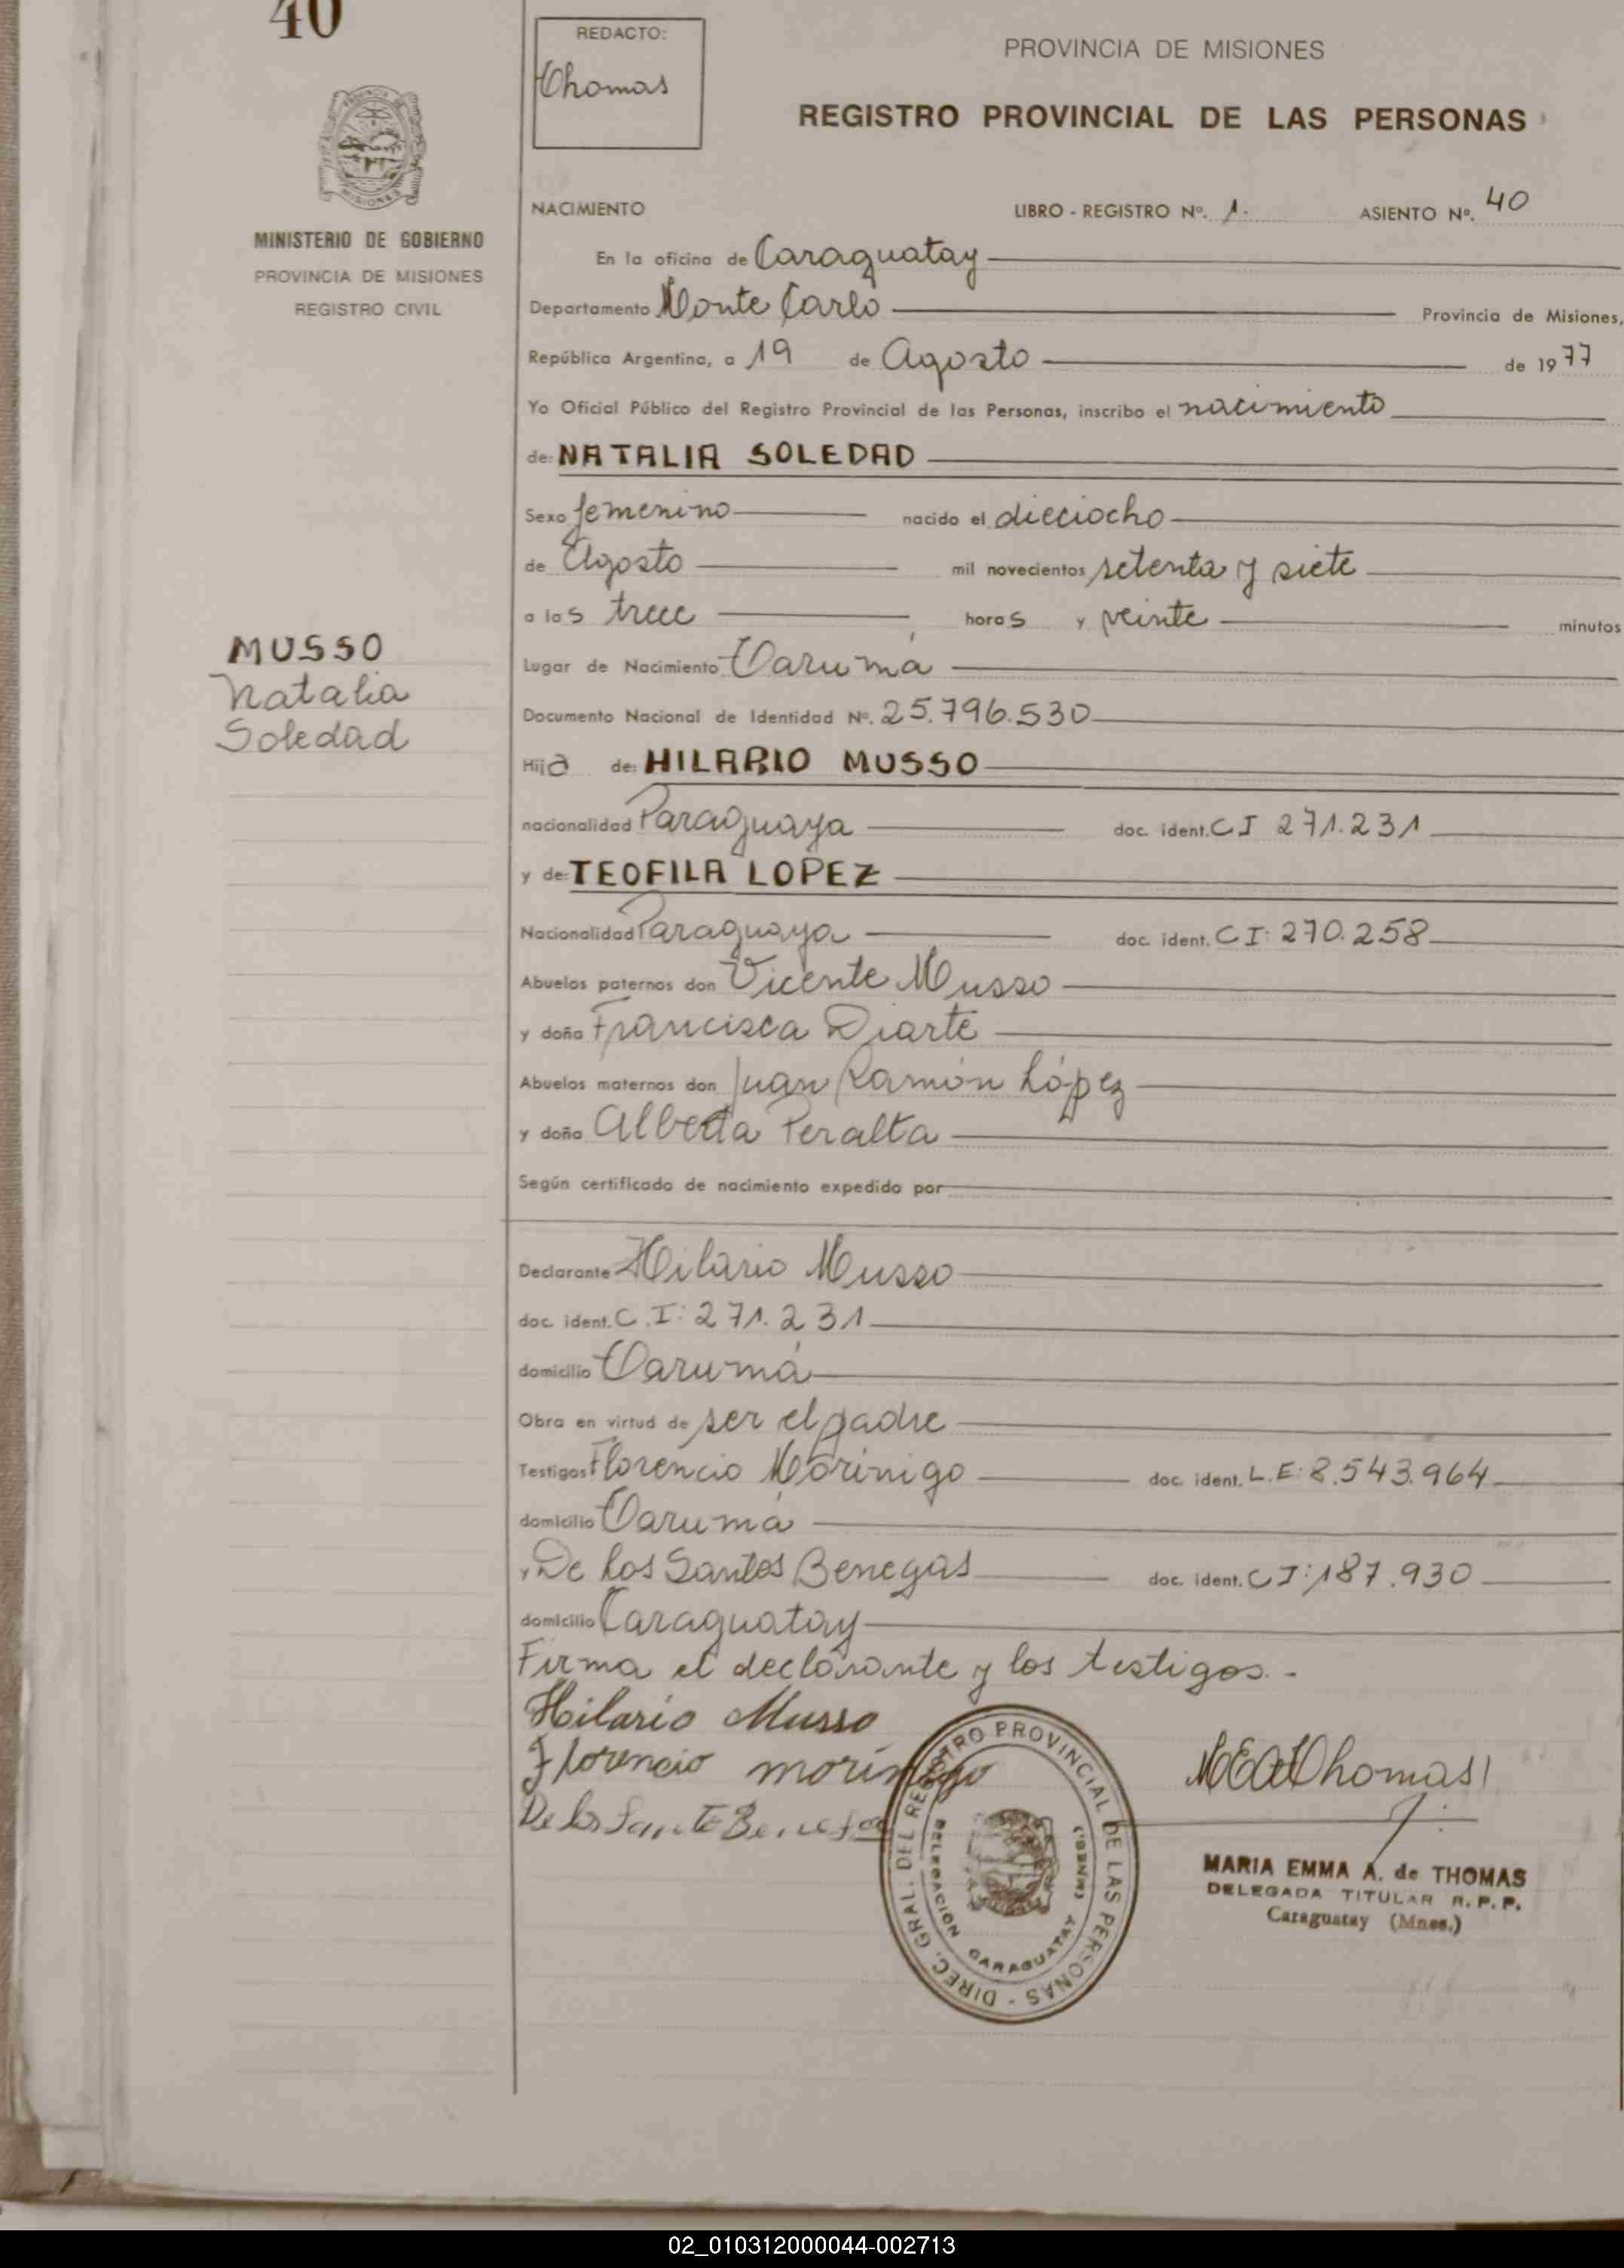 40
REDACTO:
Thomas
PROVINCIA DE MISIONES
REGISTRO PROVINCIAL DE LAS PERSONAS
MINISTERIO DE GOBIERNO
PROVINCIA DE MISIONES
REGISTRO CIVIL
NACIMIENTO LIBRO - REGISTRO Nº. 1. ASIENTO Nº. 40
En la oficina de Caraguatay
Departamento Monte Carlo Provincia de Misiones,
República Argentina, a 19 de Agosto de 1977
Yo Oficial Público del Registro Provincial de las Personas, inscribo el nacimiento
de: NATALIA SOLEDAD
Sexo femenino nacido el dieciocho
de Agosto mil novecientos setenta y siete
a las trece horas y veinte minutos
MUSSO
Natalia
Soledad
Lugar de Nacimiento Tarumá
Documento Nacional de Identidad Nº. 25.796.530
Hija de: HILARIO MUSSO
nacionalidad Paraguaya doc. ident. CI 271.231
y de: TEOFILA LOPEZ
Nacionalidad Paraguaya doc. ident. CI: 270.258
Abuelos paternos don Vicente Musso
y doña Francisca Diarte
Abuelos maternos don Juan Ramón López
y doña Alberta Peralta
Según certificado de nacimiento expedido por
Declarante Hilario Musso
doc. ident. C.I: 271.231
domicilio Tarumá
Obra en virtud de ser el padre
Testigos Florencio Morínigo doc. ident. L.E: 8.543.964
domicilio Tarumá
y De Los Santos Benegas doc. ident. CI: 187.930
domicilio Caraguatay
Firma el declarante y los testigos.-
Hilario Musso
Florencio morinigo
De los Santo Benega
DIREC. GRAL. DEL REGISTRO PROVINCIAL DE LAS PERSONAS -
DELEGACION CARAGUATAY (MNES.)
MEAThomas
MARIA EMMA A. de THOMAS
DELEGADA TITULAR R.P.P.
Caraguatay (Mnes.)
02_010312000044-002713